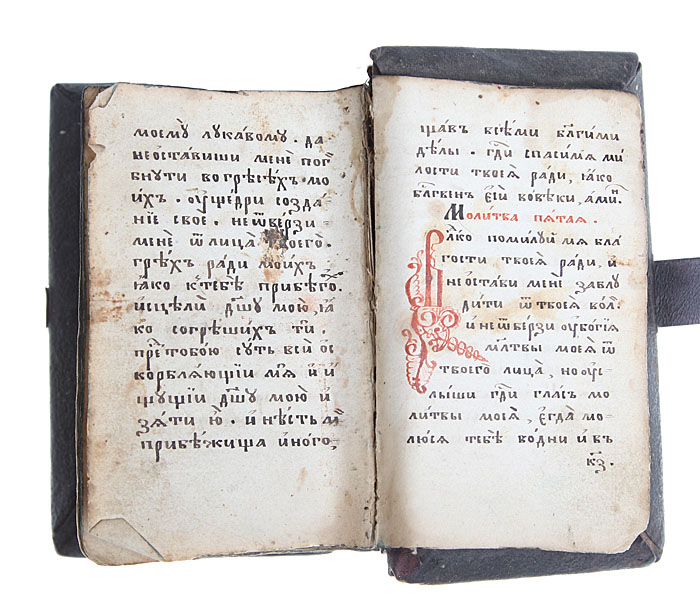 моемꙋ лꙋкавомꙋ. да
неоставиши менѐ пог꙽
бнꙋти во грѣсѣхъ мо
ихъ. ᲂущедри созда́
нїе своѐ. неѿве́рзи
менѐ ѿ лица̀ твоего̀.
грѣхъ ради моихъ
ꙗко к꙽тебѣ̀ прибѣго́хъ.
исцелѝ дш҃ꙋ мою̀, ꙗ
ко согрѣшихъ тѝ.
пре́тобою сꙋть всѝ ѡс
корблѧющїи мѧ̀ и и
щꙋщїи дш҃ꙋ мою̀ и
зѧти ю̀. и нѣсть мѝ
прибѣ́жища и́ного,
щавъ всѣми блг҃ими
дѣлы. гдⷭ҇и спаси́мѧ ми
лости твоеѧ̀ ради, ꙗко
блг҃венъ єсѝ вовѣки, ами́нь.
Молитва пѧтаѧ.
Влⷣко помилꙋй мѧ бла
гости твоеѧ̀ ради, и
не остави менѐ заблꙋ
дити ѿ твоеѧ̀ во́лѧ.
и не ѿве́рзи ᲂубогїѧ
мл҃твы моеѧ̀ ѿ
твоего̀ лица̀, но ᲂус
лыши гдⷭ҇и гласъ мо
литвы моеѧ̀, єгда̀ мо
лю́сѧ тебѣ̀ во́дни и въ
к҃з.